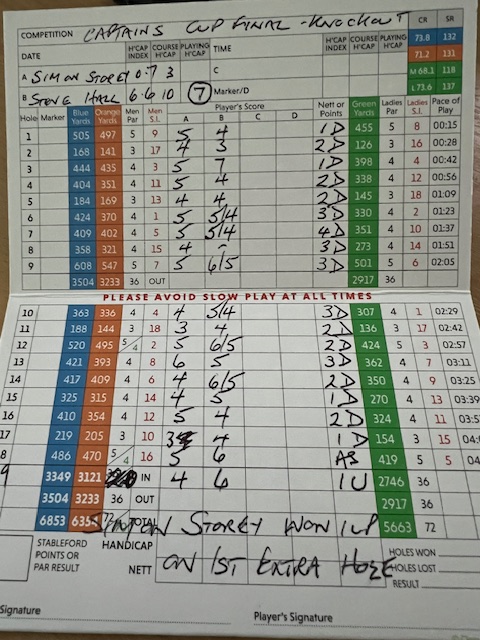 COMPETITION CAPTAINS CUP FINAL - KNOCKOUT CR SR
DATE H'CAP INDEX COURSE H'CAP PLAYING H'CAP TIME H'CAP INDEX COURSE H'CAP PLAYING H'CAP 73.8 132
71.2 131
A SIMON STOREY 0.7 3 C M 68.1 118
B STEVE HALL 6.6 10 7 Marker/D L 73.6 137
Hole Marker Blue Yards Orange Yards Men Par Men S.I. Player's Score A B C D Nett or Points Green Yards Ladies Par Ladies S.I. Pace of Play
1 505 497 5 9 5 4 1D 455 5 8 00:15
2 168 141 3 17 4 3 2D 126 3 16 00:28
3 444 435 4 3 5 7 1D 398 4 4 00:42
4 404 351 4 11 5 4 2D 338 4 12 00:56
5 184 169 3 13 4 4 2D 145 3 18 01:09
6 424 370 4 1 5 5/4 3D 330 4 2 01:23
7 409 402 4 5 5 5/4 4D 351 4 10 01:37
8 358 321 4 15 4 - 3D 273 4 14 01:51
9 608 547 5 7 5 6/5 3D 501 5 6 02:05
3504 3233 36 OUT 2917 36
PLEASE AVOID SLOW PLAY AT ALL TIMES
10 363 336 4 4 4 5/4 3D 307 4 1 02:29
11 188 144 3 18 3 4 2D 136 3 17 02:42
12 520 495 5/4 2 5 6/5 2D 424 5 3 02:57
13 421 393 4 8 6 5 3D 362 4 7 03:11
14 417 409 4 6 4 6/5 2D 350 4 9 03:25
15 325 315 4 14 4 5 1D 270 4 13 03:39
16 410 354 4 12 5 4 2D 324 4 11
17 219 205 3 10 3 4 1D 154 3 15
8 486 470 5/4 16 5 6 AS 419 5 5
3349 3121 IN 4 6 1U 2746 36
3504 3233 36 OUT 2917 36
6853 TOTAL 5663 72
SIMON STOREY WON 1UP
STABLEFORD POINTS OR PAR RESULT HANDICAP HOLES WON
NETT ON 1ST EXTRA HOLE HOLES LOST
RESULT
Signature Player's Signature